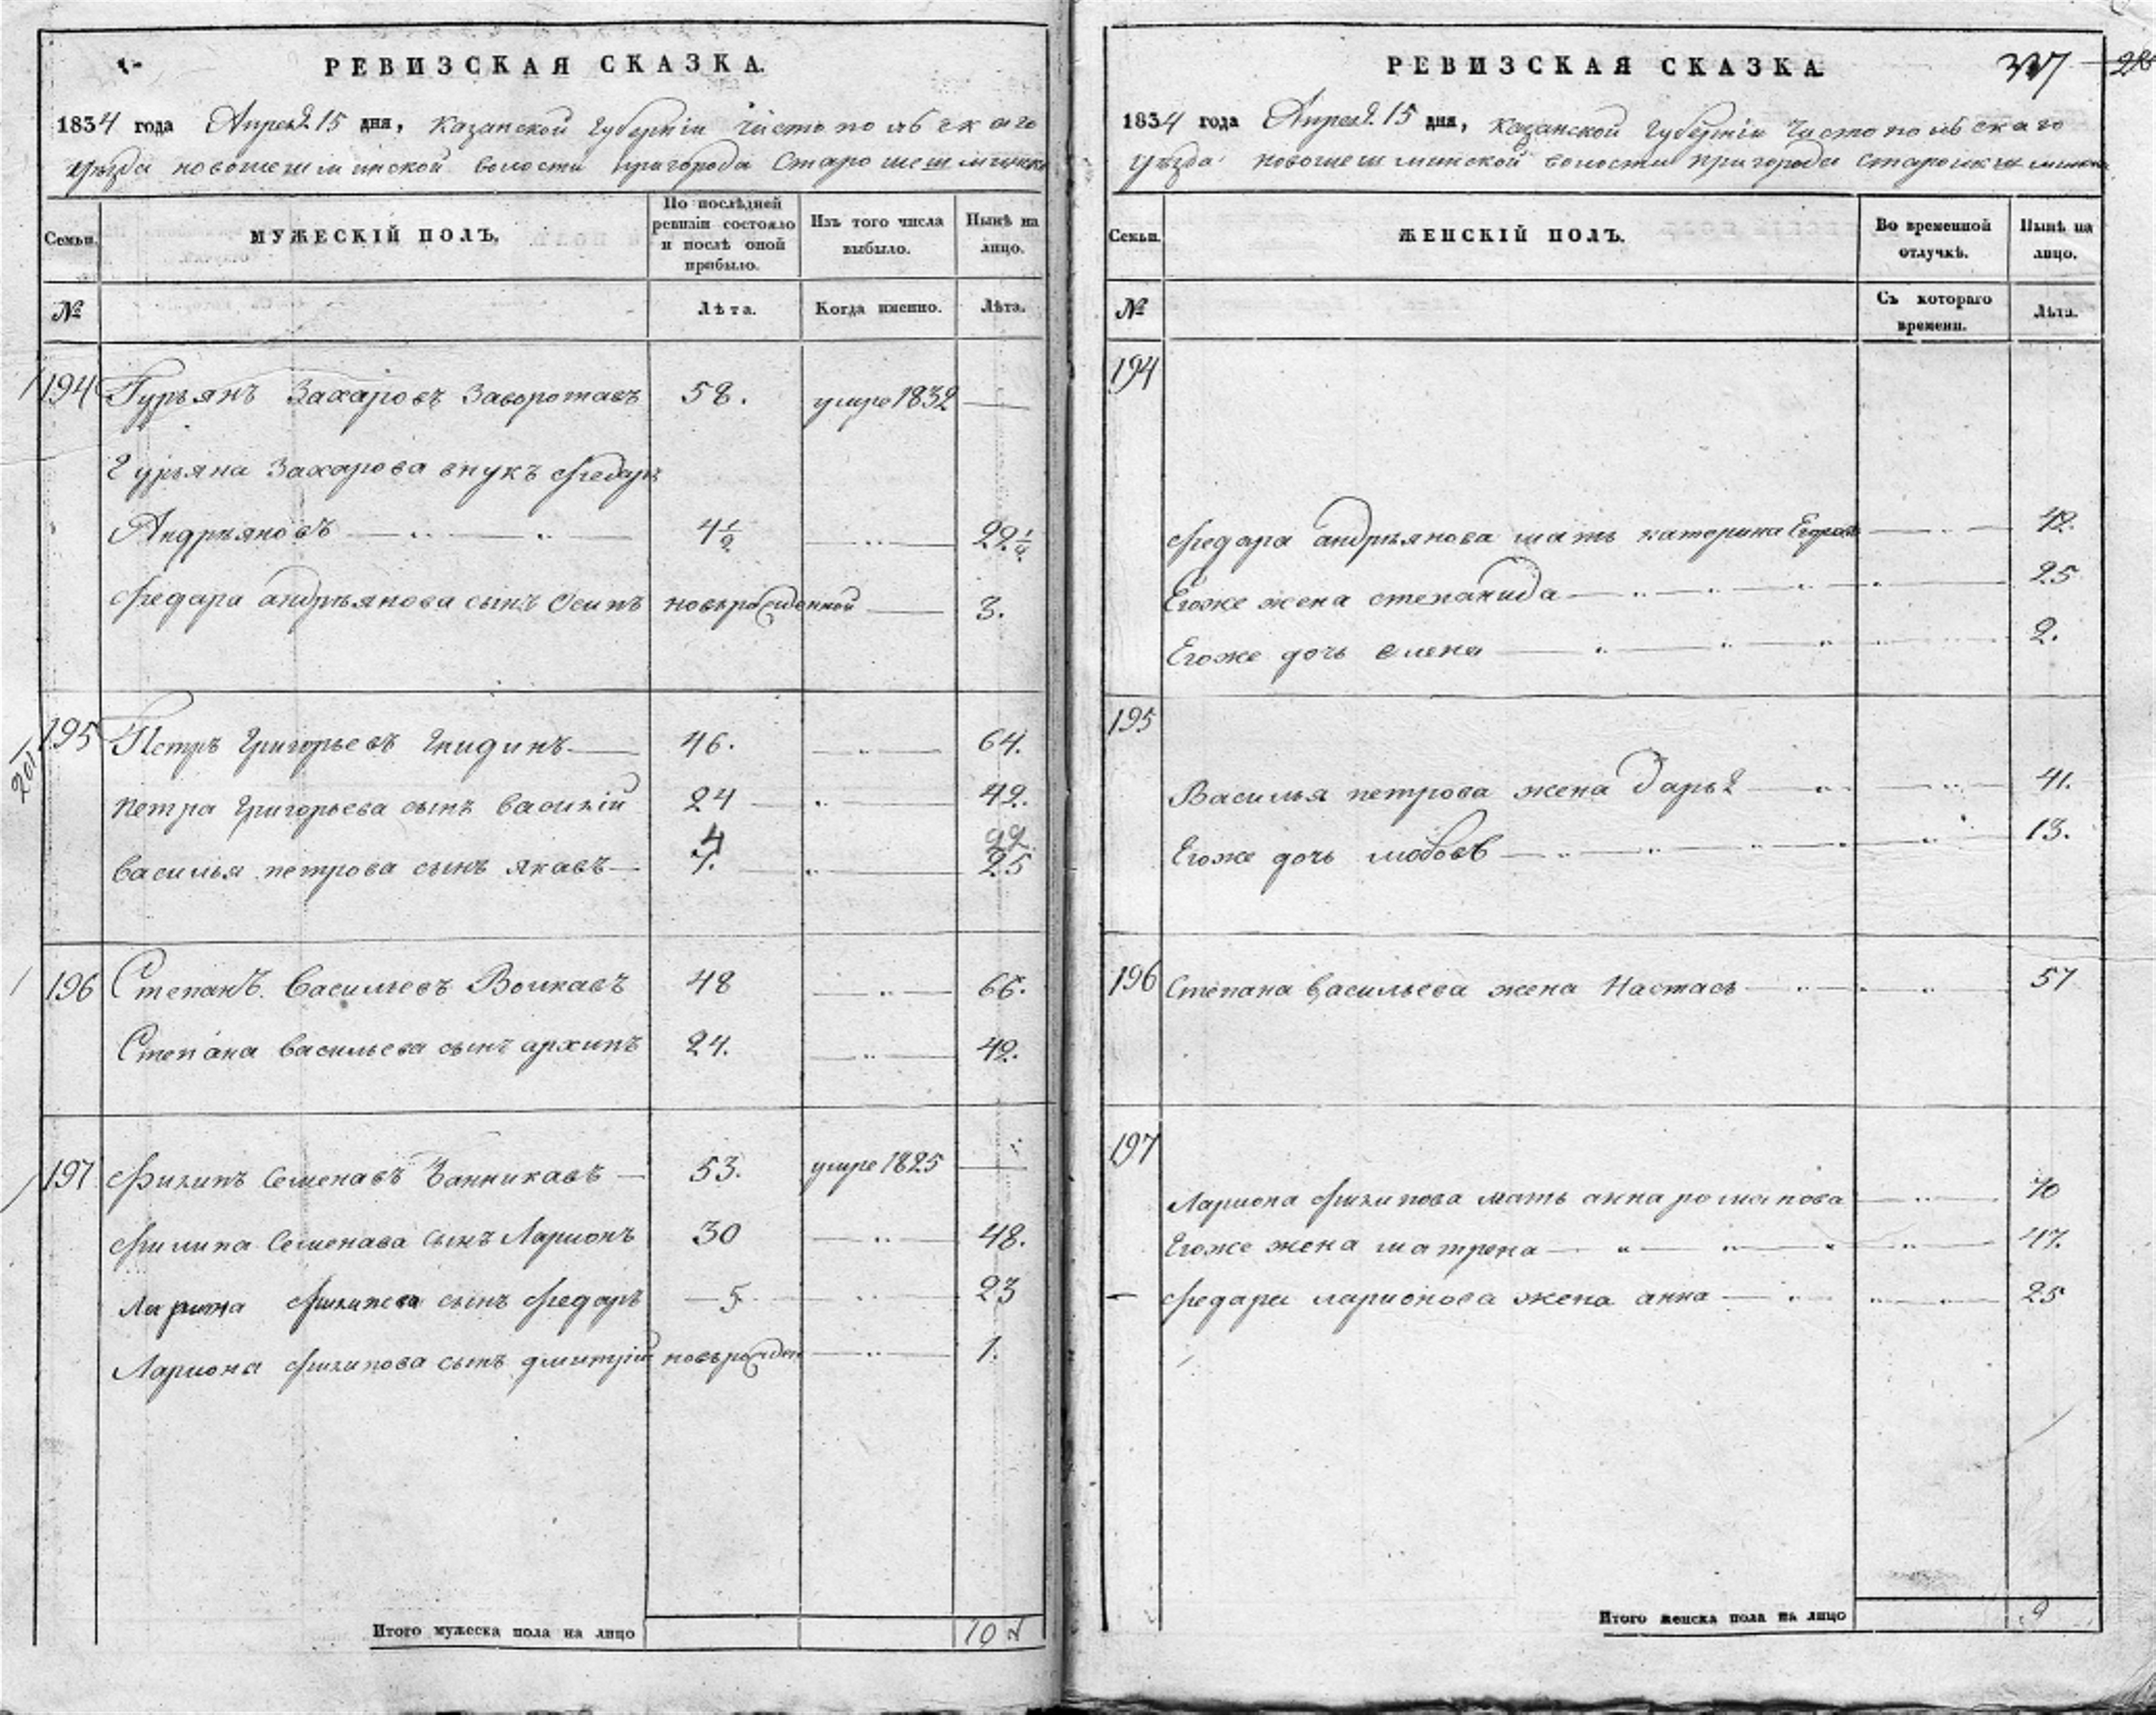 РЕВИЗСКАЯ СКАЗКА.
1834 года Апреля 15 дня, Казанской Губернiи Чистопольскаго
уѣзда новошешминской волости пригорода Старошешминска
Семьи. МУЖЕСКІЙ ПОЛЪ. По послѣдней ревизіи состояло и послѣ оной прибыло. Изъ того числа выбыло. Нынѣ на лицо.
№ Лѣта. Когда именно. Лѣта.
194 Гурьянъ Захаровъ Заворотавъ 58. умре 1832
Гурьяна Захарова внукъ Федаръ
Андрѣяновъ 4½ 22½
Федара андрѣянова сынъ Осипъ новърожденной 3.
195 Петръ Григорьевъ Гнидинъ 46. 64.
201
петра Григорьева сынъ Василiй 24 42.
4 22
Василья петрова сынъ якавъ 7. 25
196 Степанъ Васильевъ Волкавъ 48 66.
Степана Васильева сынъ архипъ 24. 42.
197 Филипъ Семенавъ Банникавъ 53. умре 1825
Филипа Семенава сынъ Ларионъ 30 48.
Лариона Филипова сынъ Федаръ 5 23
Лариона Филипова сынъ дмитрiй новърожден 1.
Итого мужеска пола на лицо 10
РЕВИЗСКАЯ СКАЗКА
1834 года Апреля 15 дня, Казанской Губернiи Чистопольскаго
уѣзда новошешминской волости пригорода старошешминска
Семьи. ЖЕНСКІЙ ПОЛЪ. Во временной отлучкѣ. Нынѣ на лицо.
№ Съ котораго времени. Лѣта.
194
Федара андрѣянова мать катерина Егорова 42.
Егоже жена степанида 25
Егоже дочь елена 2.
195
Василья петрова жена Дарья 41.
Егоже дочь любовь 13.
196 Степана Васильева жена Настась 57
197
Лариона Филипова мать анна романова 70
Егоже жена матрена 47.
Федара ларионова жена анна 25
Итого женска пола на лицо 9